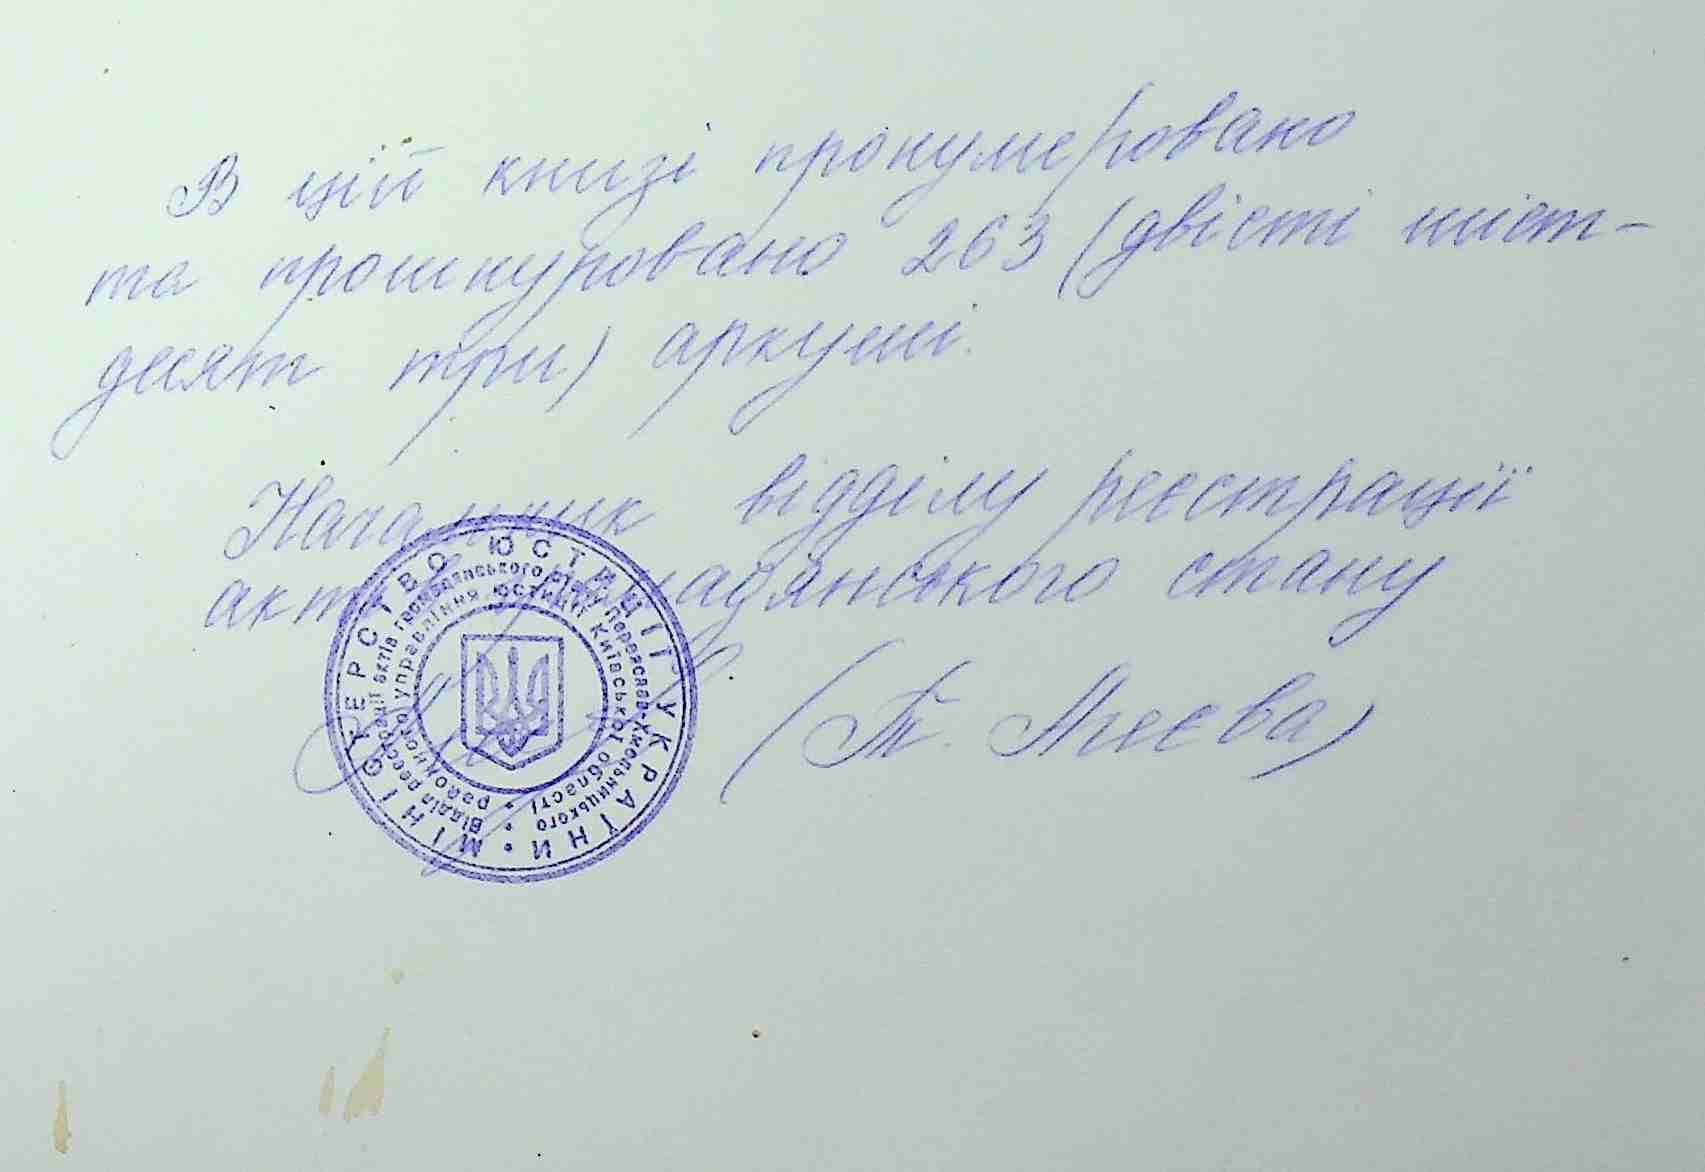 В цій книзі пронумеровано
та прошнуровано 263 (двісті шіст-
десят три) аркуші.
Начальник відділу реєстрації
актів громадянського стану
(Т. Агеєва)
МІНІСТЕРСТВО ЮСТИЦІЇ УКРАЇНИ
Відділ реєстрації актів громадянського стану Переяслав-Хмельницького
районного управління юстиції Київської області